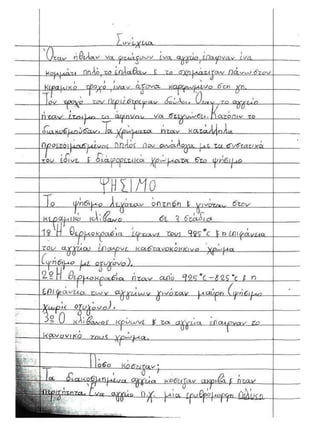 Συνέχεια
Όταν ήθελαν να φτιάξουν ένα αγγείο, έπαιρναν ένα
κομμάτι πηλό, το έπλαθαν & το σχημάτιζαν πάνω στον
κεραμικό τροχό, έναν άξονα καρφωμένο στη γη.
Τον τροχό τον περιέστρεφαν δούλοι. Όταν το αγγείο
ήταν έτοιμο το άφηναν να στεγνώσει. Κατόπιν το
διακοσμούσαν. Τα χρώματα ήταν κατάλληλα
προετοιμασμένος πηλός που ανάλογα με τα συστατικά
του έδινε & διαφορετικά χρώματα στο ψήσιμο
ΨΗΣΙΜΟ
Το ψήσιμο λεγόταν όπτηση & γινόταν στον
κεραμικό κλίβανο σε 3 στάδια
1ο Η θερμοκρασία έφτανε τους 925°C & η επιφάνεια
του αγγείου έπαιρνε καστανοκόκκινο χρώμα
(ψήσιμο με οξυγόνο).
2ο Η θερμοκρασία ήταν από 925°C-825°C & η
επιφάνεια των αγγείων γινόταν μαύρη (ψήσιμο
χωρίς οξυγόνο).
3ο Ο κλίβανος κρύωνε & τα αγγεία έπαιρναν το
κανονικό τους χρώμα.
Πόσο κόστιζαν;
Τα διακοσμημένα αγγεία κόστιζαν ακριβά & ήταν
περιζήτητα. Ένα αγγείο π.χ. μια ερυθρόμορφη